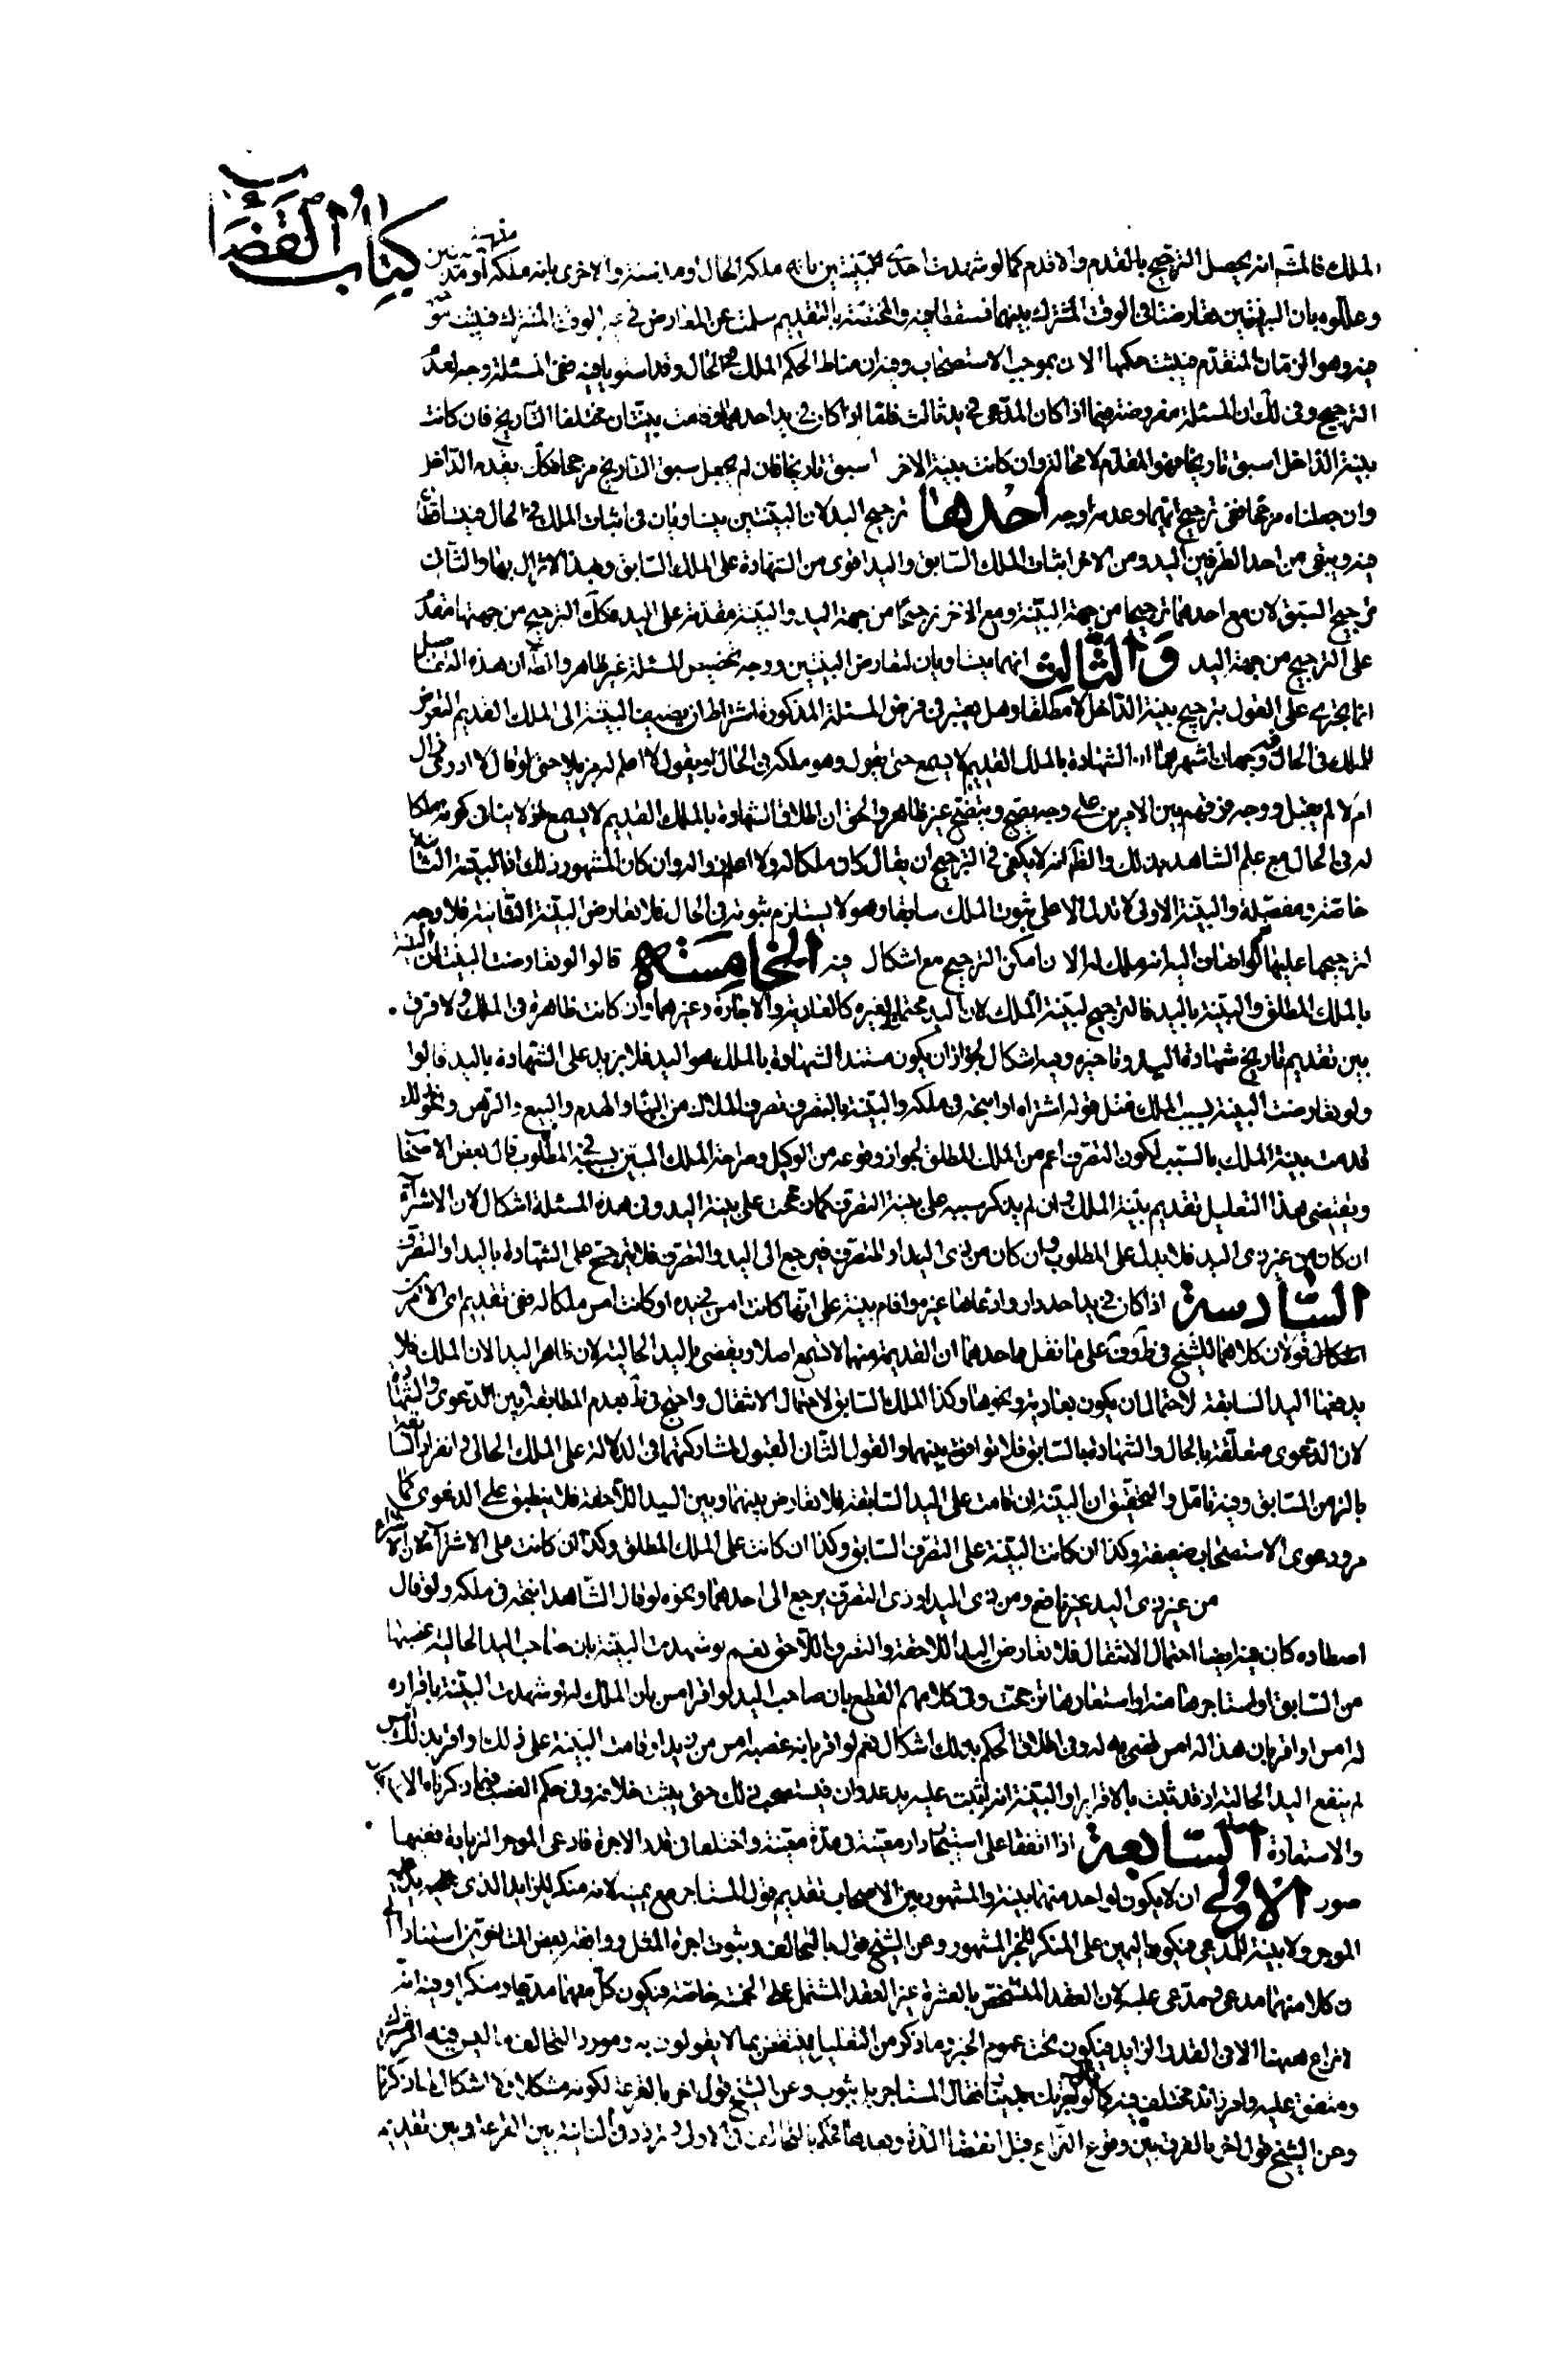 كتاب القضاء
الملك فالمشهور انه يحصل الترجيح بالقدم والاقدم كما لو شهدت احدى البينتين بانه ملكه في الحال او منذ سنة والاخرى بانه ملكه او منذ سنتين
وعللوه بان البينتين تعارضتا في الوقت المشترك بينهما فسقطا فيه والمختصة بالتقديم سلمت عن المعارض في غير الوقت المشترك فيثبت
فيه وهو الزمان المتقدم فيثبت حكمها الان بموجب الاستصحاب وفيه ان مناط الحكم الملك في الحال وقد استويا فيه ففي المسئلة وجه لعدم
الترجيح وفي ذلك ان المسئلة مفروضة فيما اذا كان المدعى في يد ثالث فلو كان في يد احدهما وقامت بينتان مختلفا التاريخ فان كانت
بينة الداخل اسبق تاريخا فهو المقدم لا محالة وان كانت بينة الاخر اسبق تاريخا فان لم يجعل سبق التاريخ مرجحا فكك يقدم الداخل
وان جعلناه مرجحا ففي ترجيح ايهما وعدمه اوجه احدها ترجيح اليد لان البينتين يتساويان في اثبات الملك في الحال فيتساقطان
فيه ويبقى من احد الطرفين اليد ومن الاخر اثبات الملك السابق واليد اقوى من الشهادة على الملك السابق ولهذا لا تزال بها والثاني
ترجيح السبق لان مع احدهما ترجيحا من جهة البينة ومع الاخر ترجيحا من جهة اليد والبينة مقدمة على اليد فكك الترجيح من جهتها مقدم
على الترجيح من جهة اليد والثالث انهما يتساويان لتعارض البينتين ووجه تخصيص المسئلة غير ظاهر والظ ان هذه التفاصيل
انما يجري على القول بترجيح بينة الداخل لا مطلقا وهل يعتبر في فرض المسئلة المذكورة اشتراط ان يضيف البينة الى الملك القديم التعرض
للملك في الحال وجهان اشهرهما ان الشهادة بالملك القديم لا يسمع حتى يقول وهو ملكه في الحال او يقول لا اعلم له مزيلا حتى لو قال لا ادري زال
ام لا لم يقبل ووجه فرقهم بين الامرين على وجه يصح ويتضح غير ظاهر والحق ان اطلاق الشهادة بالملك القديم لا يسمع لانه لا ينافي كونه ملكا
له في الحال مع علم الشاهد بذلك والظ انه لا يكفي في الترجيح ان يقال كان ملكا له ولا اعلم زواله وان كان المشهور ذلك اذ البينة الثانية
خاصة ومفصلة والبينة الاولى لا تدل الا على ثبوت الملك سابقا وهو لا يستلزم ثبوته في الحال فلا تعارض البينة الثانية فلا وجه
لترجيحها عليها لو اضاف اليه انه ملك له الان امكن الترجيح مع اشكال فيه الخامسة قالوا لو تعارضت البينتان البينة
بالملك المطلق والبينة باليد فالترجيح لبينة الملك لان اليد محتملة لغيره كالعارية والاجارة وغيرهما وان كانت ظاهرة في الملك ولا فرق
بين تقديم تاريخ شهادة اليد وتاخيره وفيه اشكال لجواز ان يكون مستند الشهادة بالملك هو اليد فلا يزيد على الشهادة باليد قالوا
ولو تعارضت البينة بسبب الملك مثل قوله اشتراه او انتجه في ملكه والبينة بالتصرف تصرف الملاك من البناء والهدم والبيع والرهن ونحو ذلك
قدمت بينة الملك بالسبب لكون التصرف اعم من الملك المطلق لجواز وقوعه من الوكيل وصراحة الملك المبين بسببه في المطلوب قال بعض الاصحاب
ويقتضي هذا التعليل تقديم بينة الملك وان لم يذكر سببه على بينة التصرف كما رجحت على بينة اليد وفي هذه المسئلة اشكال لان الاشتراء
ان كان من غير ذي اليد فلا يدل على المطلوب وان كان من ذي اليد او المتصرف فيرجع الى اليد والتصرف فلا يترجح على الشهادة باليد او التصرف
السادسة اذا كان في يد احد دار وادعاها غيره واقام بينة على انها كانت امس في يده او كانت امس ملكا له ففي تقديم اي الامرين
اشكال قولان كلاهما للشيخ في ط وف على ما نقل احدهما ان القديمة منهما لا تسمع اصلا ويقضى باليد الحالية لان ظاهر اليد الان الملك فلا
يدفعها اليد السابقة لاحتمال ان يكون بعارية ونحوها وكذا الملك السابق لاحتمال الانتقال واحتج في ف بعدم المطابقة بين الدعوى والشهادة
لان الدعوى متعلقة بالحال والشهادة بالسابق فلا توافق بينهما والقول الثاني القبول لمشاركتهما في الدلالة على الملك الحالي وانفراد السابقة
بالزمن السابق وفيه تامل والتحقيق ان البينة ان قامت على اليد السابقة فلا تعارض بينهما وبين اليد اللاحقة فلا ينطبق على الدعوى كما
مر ودعوى الاستصحاب ضعيفة وكذا ان كانت البينة على التصرف السابق وكذا ان كانت على الملك المطلق وكذا ان كانت على الاشتراء لان الاشتراء
من غير ذي اليد غير نافع ومن ذي اليد او ذي التصرف يرجع الى احدهما ونحوه لو قال الشاهد انتجه في ملكه ولو قال
اصطاده كان فيه ايضا احتمال الانتقال فلا تعارض اليد اللاحقة والتصرف اللاحق نعم لو شهدت البينة بان صاحب اليد الحالية غصبها
من السابق او استاجرها منه او استعارها ترجحت وفي كلامهم القطع بان صاحب اليد لو اقر امس بان الملك له او شهدت البينة باقراره
له امس او اقر بان هذا له امس قضي به له وفي اطلاق الحكم بذلك اشكال نعم لو اقر بانه غصبه امس من زيد او قامت البينة على ذلك او اقر بذلك امس
لم ينفع اليد الحالية اذ قد ثبت بالاقرار او البينة انه اثبت عليه يد عدوان فيستصحب ذلك حتى يثبت خلافه وفي حكم الغصب فيما ذكرناه الاستيجار
والاستعارة السابعة اذا اتفقا على استيجار دار معينة في مدة معينة واختلفا في قدر الاجرة فادعى الموجر الزيادة ففيها
صور الاولى ان لا يكون لواحد منهما بينة والمشهور بين الاصحاب تقديم قول المستاجر مع يمينه لانه منكر للزايد الذي يدعيه
الموجر ولا بينة للمدعي فيكون اليمين على المنكر للخبر المشهور وعن الشيخ قول بالتحالف وثبوت اجرة المثل ووافقه بعض المتاخرين استنادا الى
ان كلا منهما مدع ومدعى عليه لان العقد المتشخص بالعشرة غير العقد المشتمل على الخمسة خاصة فيكون كل منهما مدعيا ومنكرا وفيه انه
لا نزاع ههنا الا في القدر الزايد فيكون تحت عموم الخبر وما ذكر من التعليل ينتقض بما لا يقولون به ومورد التحالف ما ليس فيه امر مشترك
ومتفق عليه وامر زايد مختلف فيه كما لو قال اجرتك بيتا فقال المستاجر بل بثوب وعن الشيخ قول اخر بالقرعة لكونه مشكلا ولا اشكال لما ذكرنا
وعن الشيخ قول اخر بالفرق بين وقوع النزاع قبل انقضاء المدة وبعدها فحكم بالتحالف في الاول وتردد في الثانية بين القرعة وبين تقديم